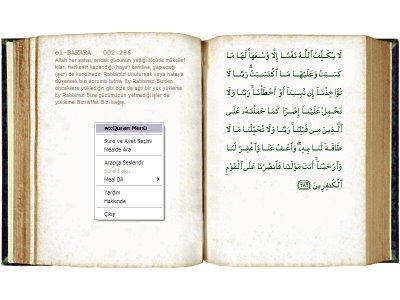 el-BAKARA 002.286
Allah her şahsı, ancak gücünün yettiği ölçüde mükellef
kılar. Herkesin kazandığı (hayır) kendine, yapacağı
(şer) de kendinedir. Rabbimiz! Unutursak veya hataya
düşersek bizi sorumlu tutma. Ey Rabbimiz! Bizden
öncekilere yüklediğin gibi bize de ağır bir yük yükleme.
Ey Rabbimiz! Bize gücümüzün yetmediği işler de
yükleme! Bizi affet! Bizi bağış
wxQuran Menü
Sure ve Ayat Seçimi
Mealde Ara
Arapça Seslendir
Sürekli oku
Meal Dili
Yardım
Hakkında
Çıkış
لَا يُكَلِّفُ ٱللَّهُ نَفْسًا إِلَّا وُسْعَهَا ۚ لَهَا مَا
كَسَبَتْ وَعَلَيْهَا مَا ٱكْتَسَبَتْ ۗ رَبَّنَا لَا
تُؤَاخِذْنَآ إِن نَّسِينَآ أَوْ أَخْطَأْنَا ۚ رَبَّنَا وَلَا
تَحْمِلْ عَلَيْنَآ إِصْرًا كَمَا حَمَلْتَهُۥ عَلَى
ٱلَّذِينَ مِن قَبْلِنَا ۚ رَبَّنَا وَلَا تُحَمِّلْنَا مَا لَا
طَاقَةَ لَنَا بِهِۦ ۖ وَٱعْفُ عَنَّا وَٱغْفِرْ لَنَا
وَٱرْحَمْنَآ ۚ أَنتَ مَوْلَىٰنَا فَٱنصُرْنَا عَلَى ٱلْقَوْمِ
ٱلْكَٰفِرِينَ ﴿٢٨٦﴾